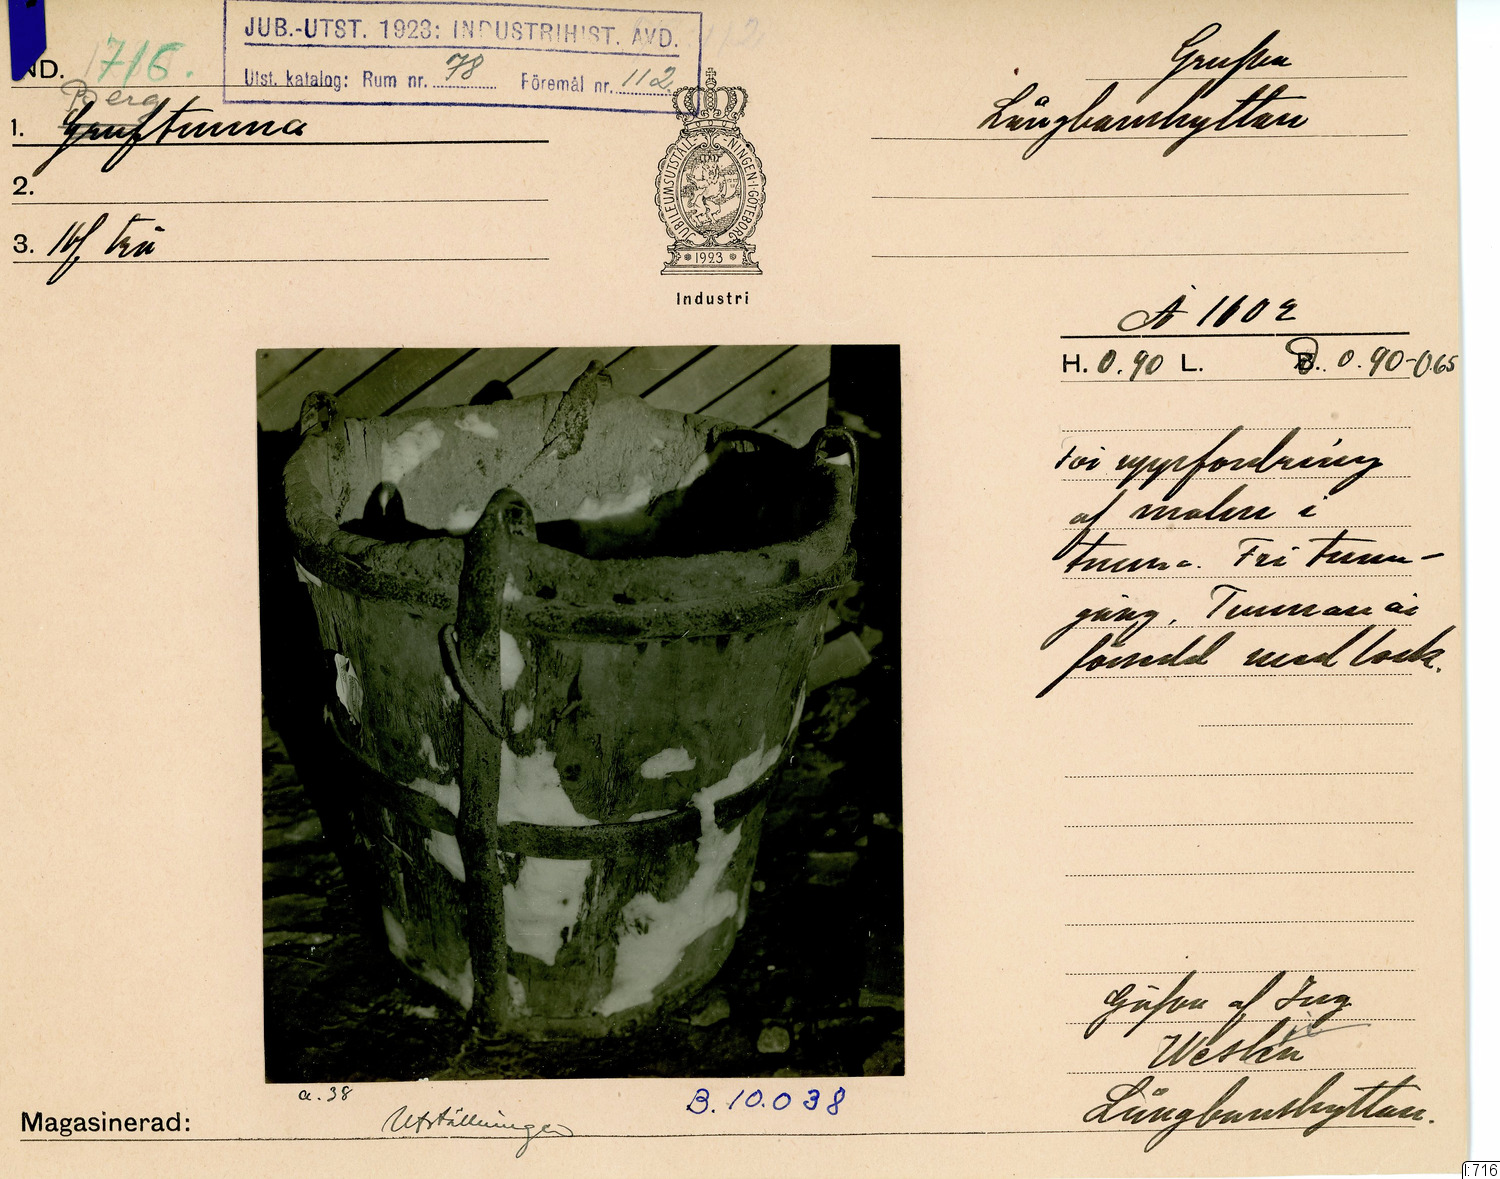 JUB.-UTST. 1923: INDUSTRIHIST. AVD.
Utst. katalog: Rum nr. 78 Föremål nr. 112.
ND. 1716.
Berg
1. Gruftunna
2.
3. Af trä
JUBILEUMSUTSTÄLLNINGEN I GÖTEBORG
1923
Industri
Långbanshyttan
A 1102
H. 0.90 L. D. 0.90-0.65
För uppfordring
af malm i
tunna. Fri tunn-
gång. Tunnan är
försedd med lock.
Gåfva af Ing
Weslin
Långbanshyttan.
a. 38
B.10.038
Magasinerad: Utställningen
I:716